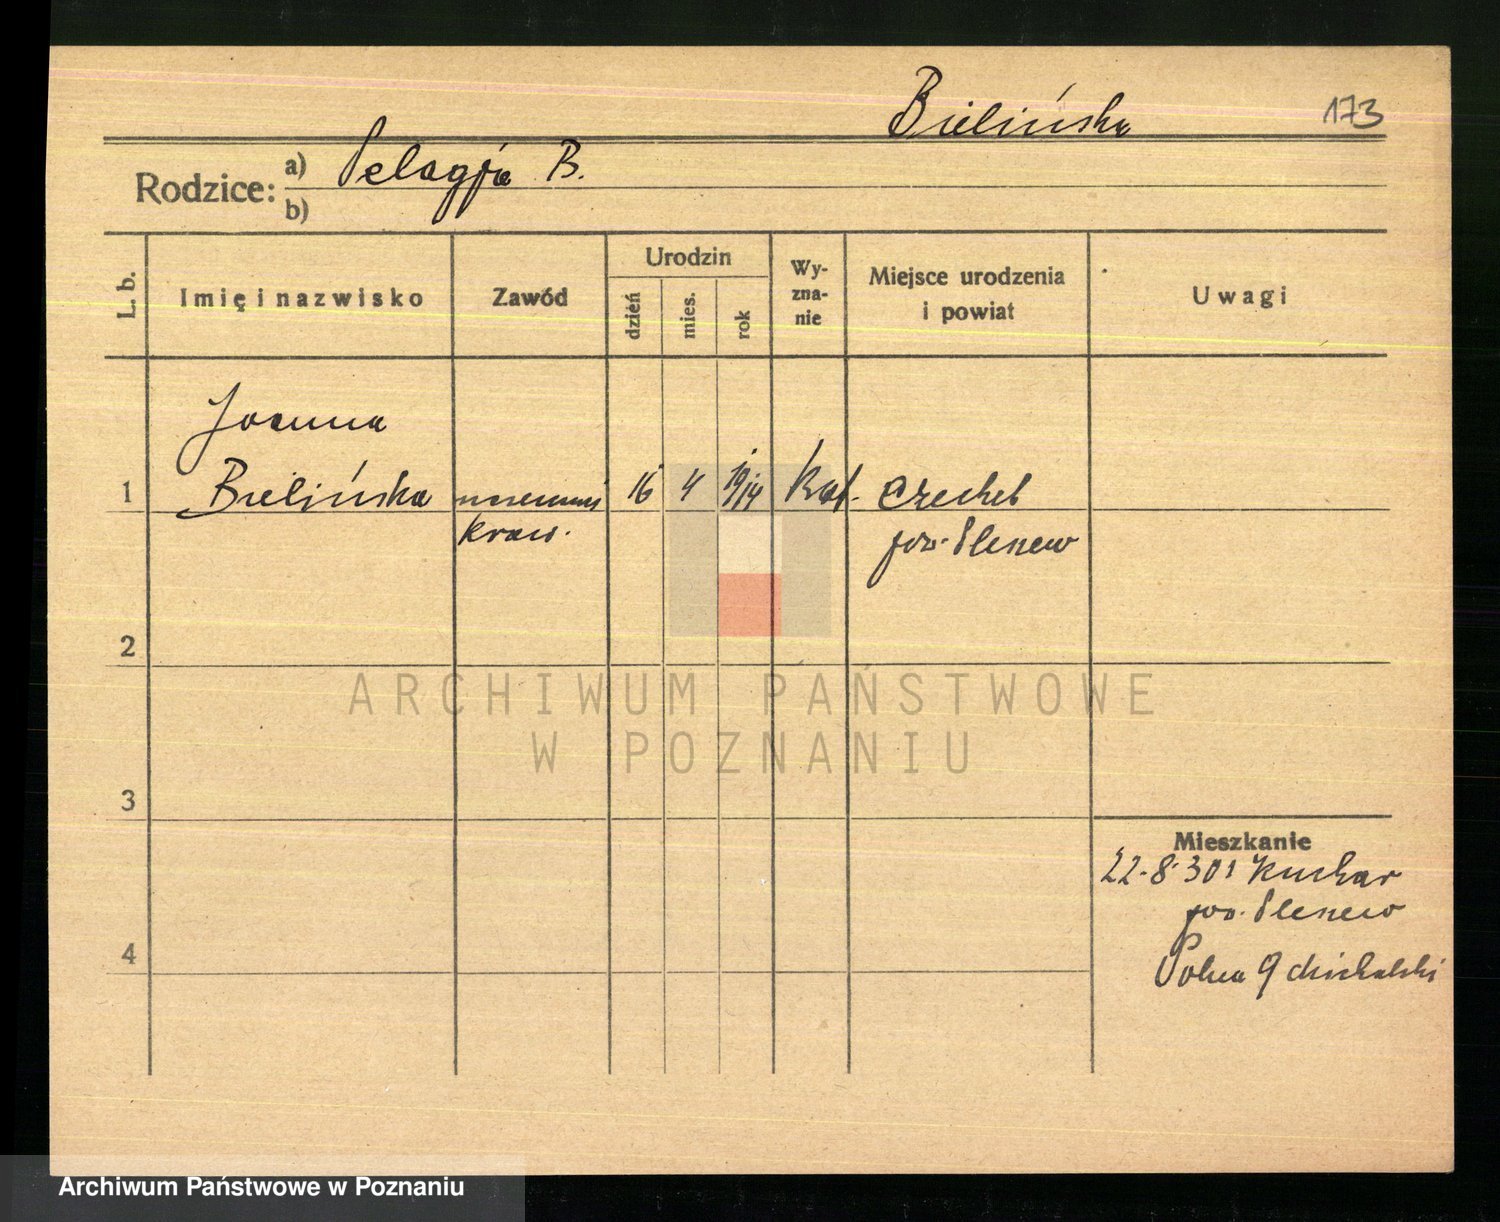 Bielińska 173
Rodzice: a) Pelagja B.
b)
L. b. Imię i nazwisko Zawód Urodzin dzień mies. rok Wy-zna-nie Miejsce urodzenia i powiat Uwagi
Joanna
1 Bielińska 16 4 1914 Kat. Czechel
kraw. pow. Pleszew
2
ARCHIWUM PAŃSTWOWE
W POZNANIU
3
Mieszkanie
22.8.30 Kuchar
pow. Pleszew
4
Polna 9 Michalski
Archiwum Państwowe w Poznaniu